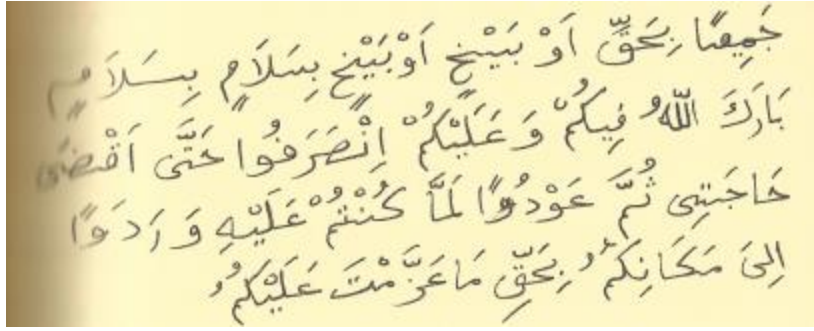 جَمِيعًا بِحَقِّ اَوْ بَيْنٍخٍ اَوْبَيْنٍخٍ بِسَلاَمٍ بِسَلاَمٍ
بَارَكَ اللّٰهُ فِيكُمْ وَعَلَيْكُمْ اِنْصَرَفُوا حَتَّى اَقْضَى
حَاجَتِى ثُمَّ عَوْدُوًا لَمَّا كُنْتُمْ عَلَيْهِ وَارَدَوًا
اِلىَ مَكَانِكُمْ بِحَقِّ مَاعَزَّمْتَ عَلَيْكُمْ